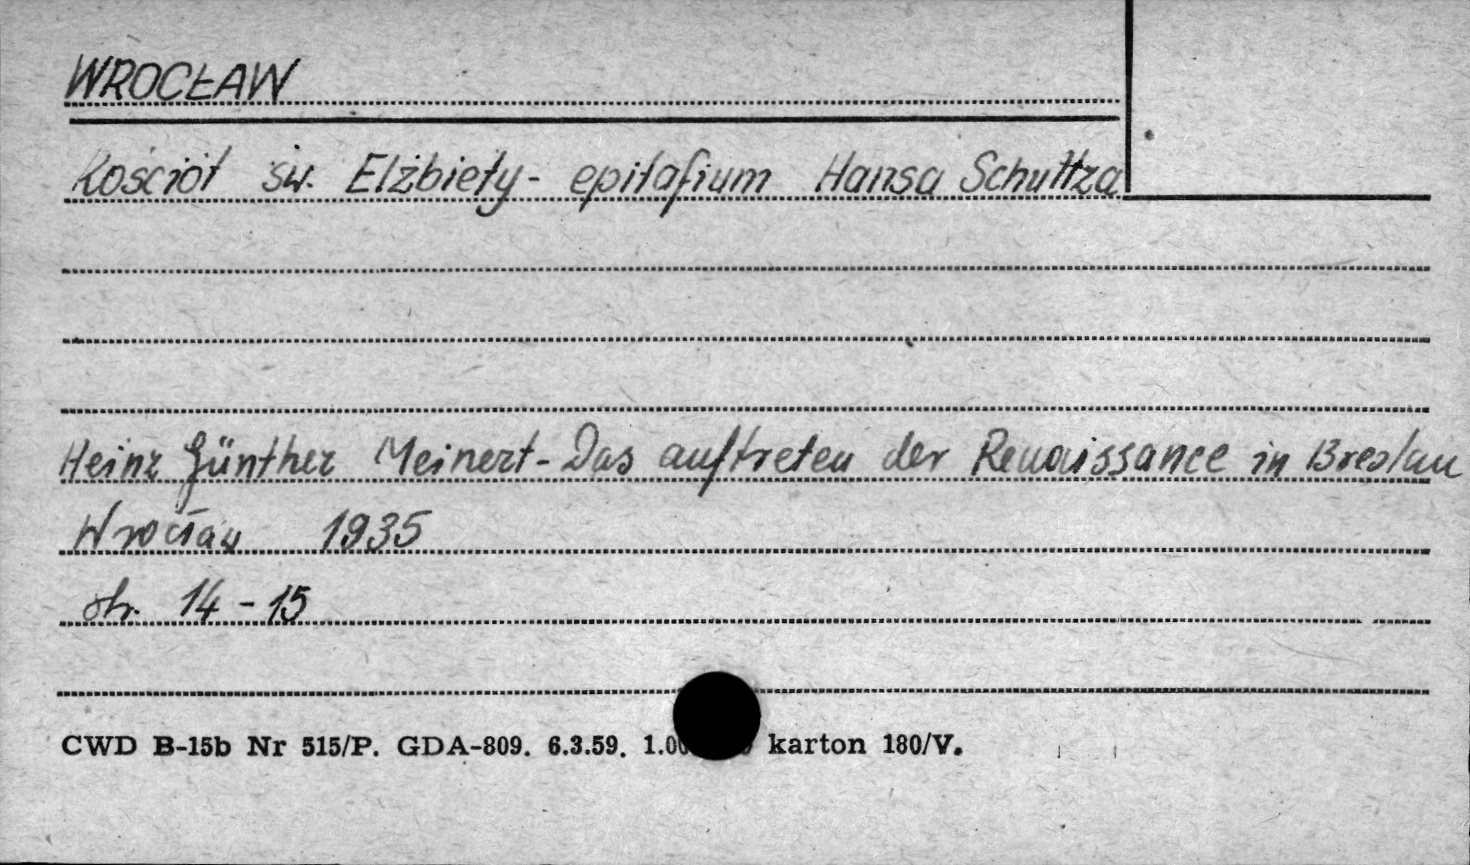 WROCŁAW
Kościół św. Elżbiety - epitafium Hansa Schultza
Heinz Günther Meinert - Das auftreten der Renaissance in Breslau
Wrocław 1935
str. 14 - 15
CWD B-15b Nr 515/P. GDA-809. 6.3.59. karton 180/V.